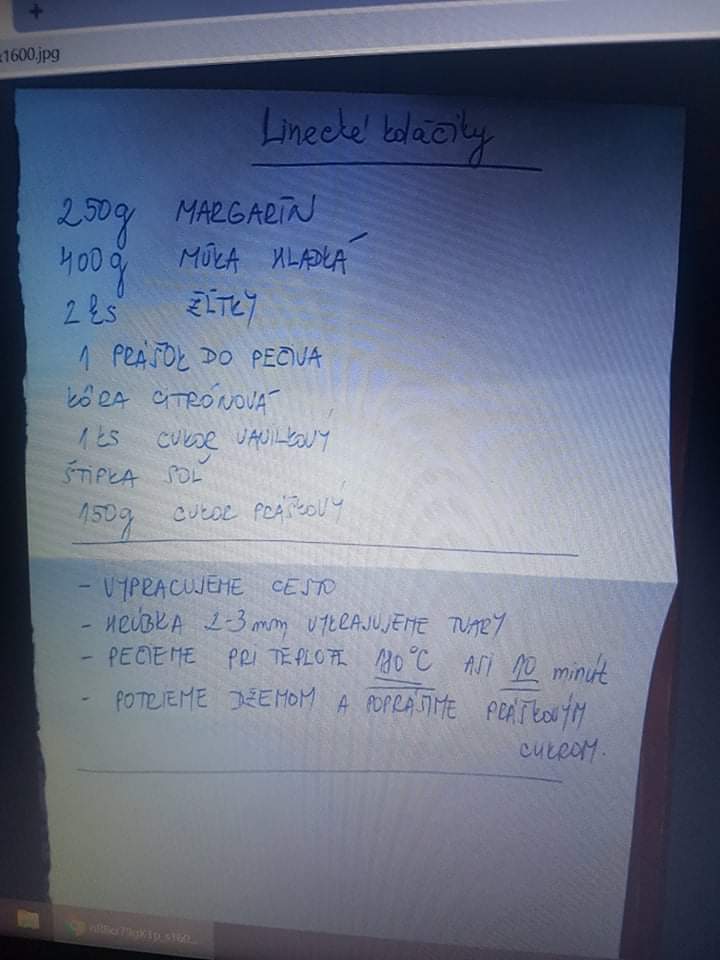 x1600.jpg
Linecké koláčiky
250g MARGARÍN
400g MÚKA HLADKÁ
2 ks ŽĹTKY
1 PRÁŠOK DO PEČIVA
KÔRA CITRÓNOVÁ
1 KS CUKOR VANILKOVÝ
ŠTIPKA SOĽ
150g CUKOR PRÁŠKOVÝ
- VYPRACUJEME CESTO
- HRÚBKA 2-3 mm VYKRAJUJEME TVARY
- PEČIEME PRI TEPLOTE 180°C ASI 10 minút
- POTRIEME DŽEMOM A POPRÁŠIME PRÁŠKOVÝM
CUKROM.